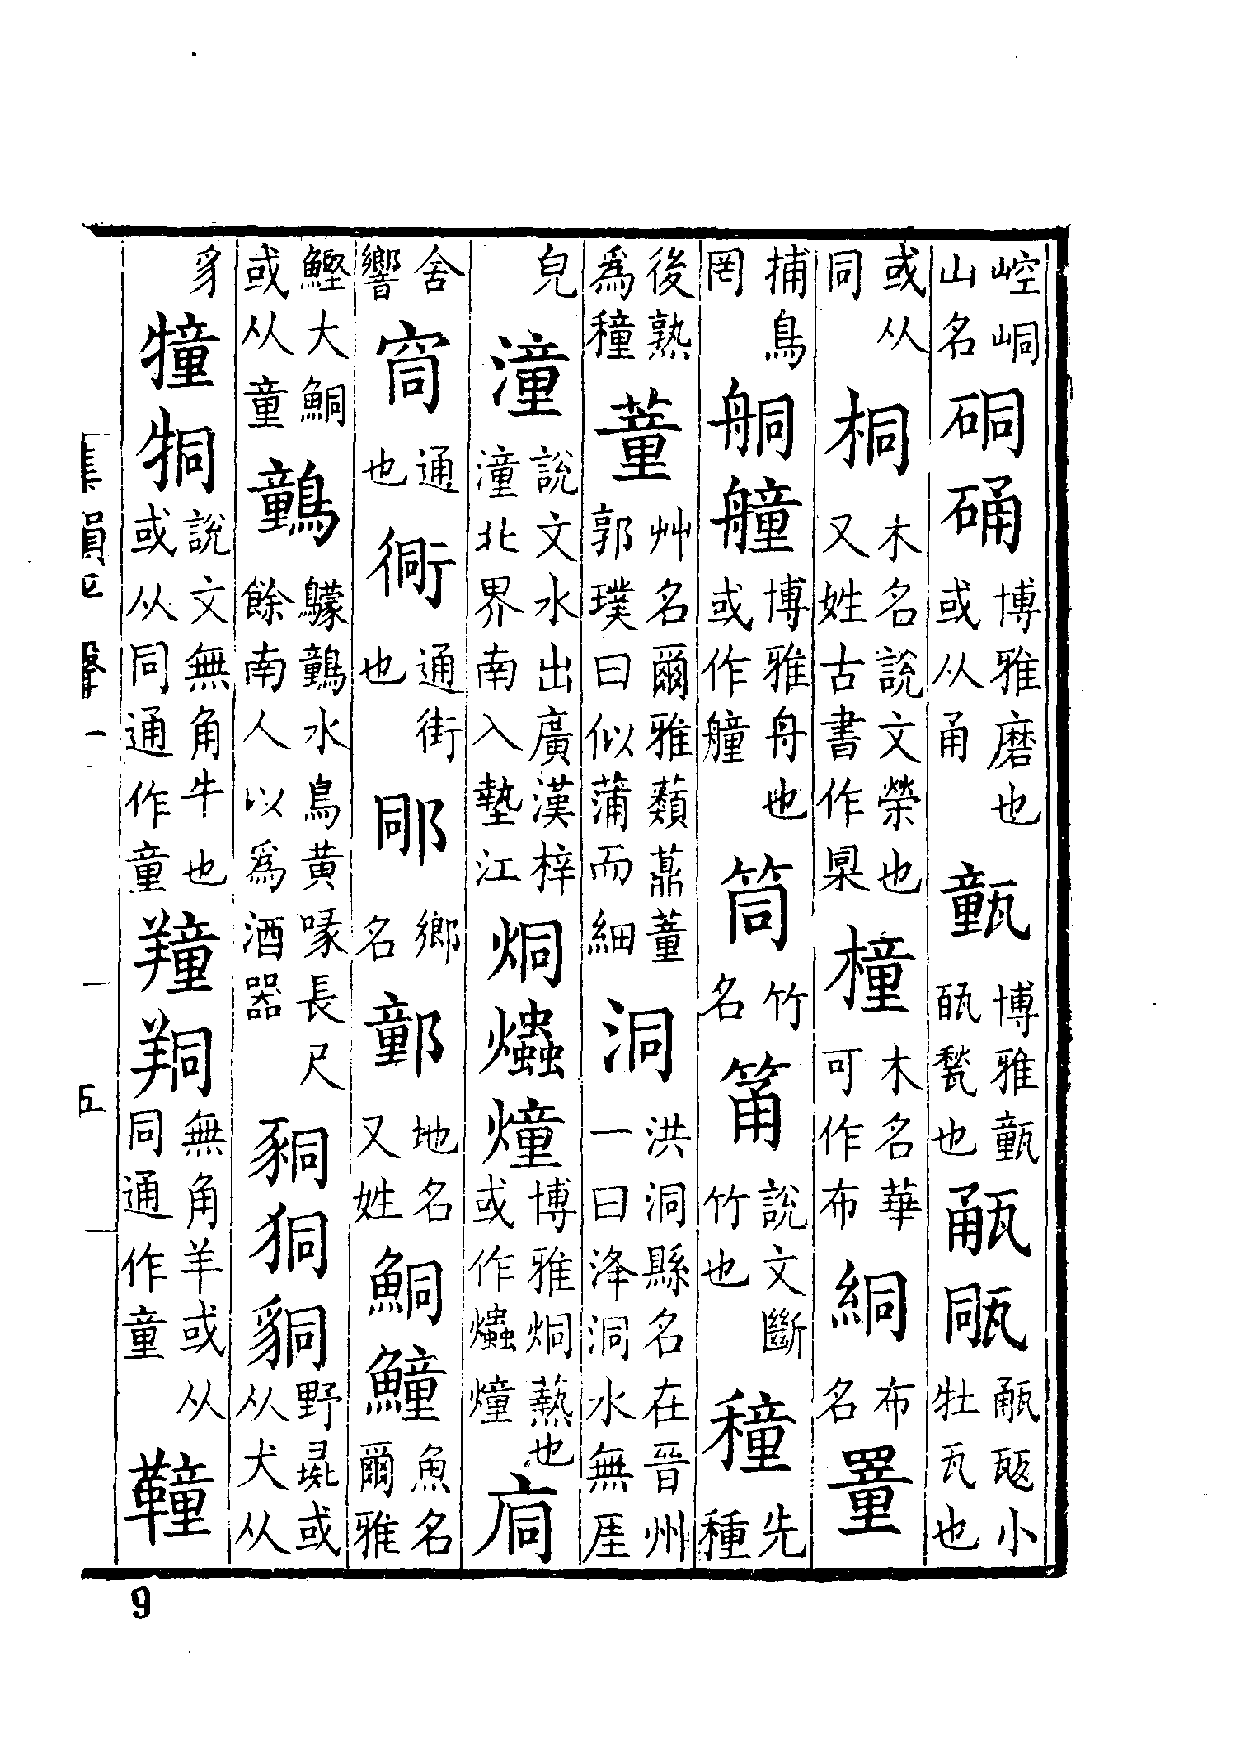 崆峒山名硐硧博雅磨也或从甬㼿博雅㼿㼚甃也㼧㼒㼧瓳小牡瓦也
或从同桐木名說文榮也又姓古書作㮔橦木名華可作布絅布名罿
捕鳥罔䑸艟博雅舟也或作艟筒竹名筩說文斷竹也穜先種
後熟爲穜蕫艸名爾雅虉薡蕫郭璞曰似蒲而細洞洪洞縣名在晉州一曰洚洞水無厓
皃潼說文水出廣漢梓潼北界南入墊江烔爞㸈博雅烔熱也或作爞㸈㢥
舍響窗通也衕通街也䣘鄉名鄞地名又姓鮦鱦魚名爾雅
鰹大鮦或从童鷾鸏鷾水鳥黃喙長尺餘南人以爲酒器㣠狪䝅野彘或从犬从
豸犝㸗說文無角牛也或从同通作童羵䍶無角羊或从同通作童鞾
集韻平聲一
五
9